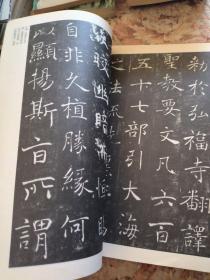 勅於弘福寺翻譯
聖教要文凡六百
五十七部引大海
之法流
皎幽
自非久植勝緣何
以顯揚斯旨所謂